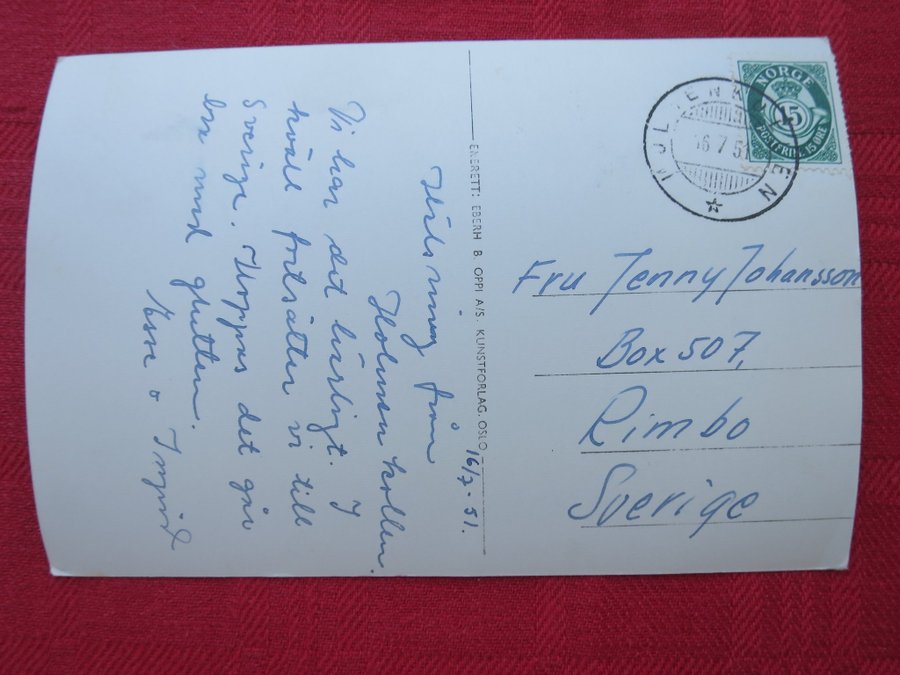 16/7 - 51.
Hälsning från
Holmenkollen.
Vi har det härligt. I
kväll fortsätter vi till
Sverige. Hoppas det går
bra med glutten.
o Ingrid
ENERETT: EBERH B. OPPI A/S. KUNSTFORLAG. OSLO
NORGE
15
POSTFRIM. 15 ØRE
Fru Jenny Johansson
Box 507.
Rimbo
Sverige